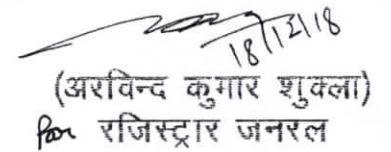 18/12/18
(अरविन्द कुमार शुक्ला)
For रजिस्ट्रार जनरल